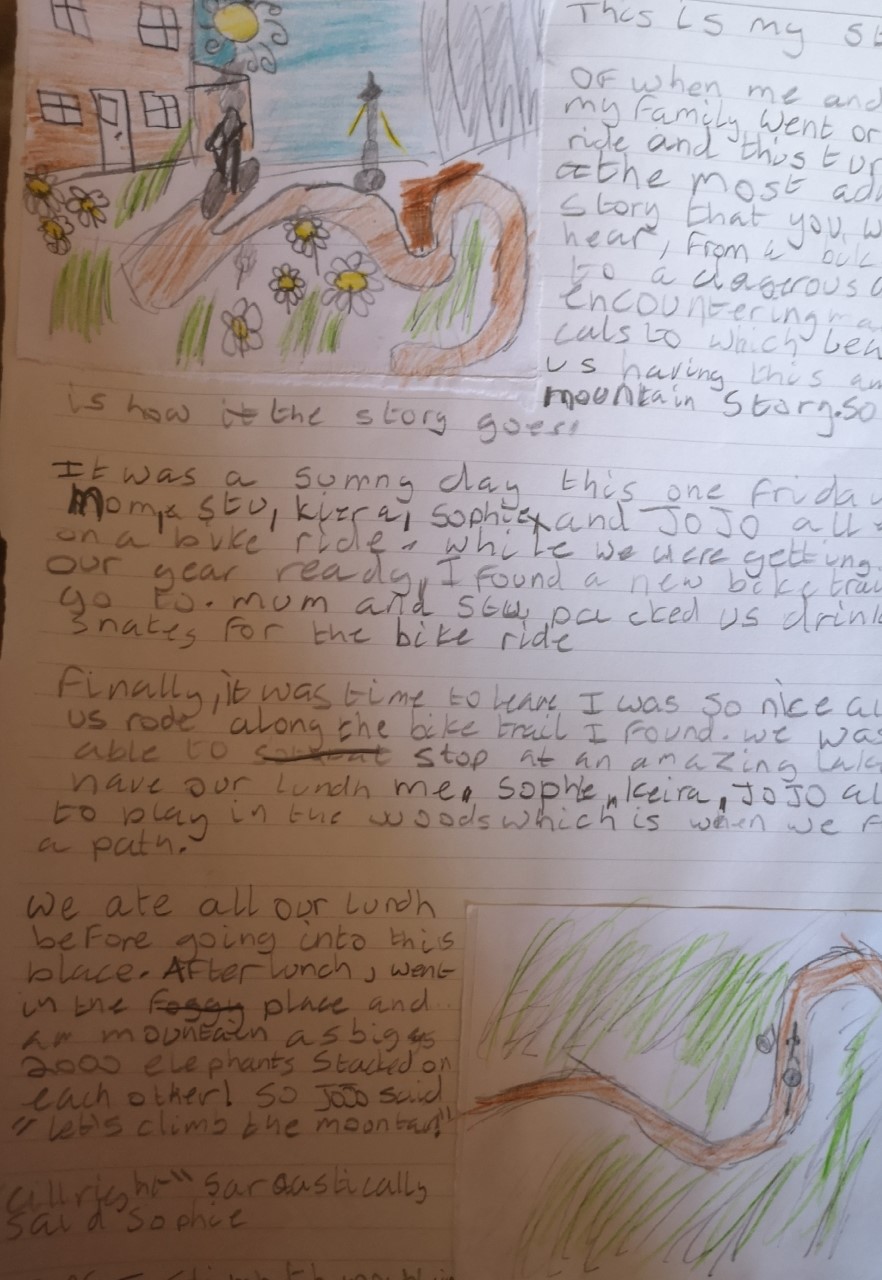 This is my st
Of when me and
my family went on
ride and this tur
the most ad
story that you w
hear, From a bik
to a dagerous a
encountering ma
cals to which lea
us having this am
mountain story. so
is how it the story goes!
It was a sunny day this one frida
Mom, Stu, kizra, Sophie, and JOJO all
on a bike ride. while we were getting
our gear ready, I found a new bike trai
go to. mum and Stu, packed us drink
snakes for the bike ride
Finally, it was time to leave I was so nice al
us rode along the bike trail I found. we was
able to stop at an amazing lak
have our lundh me, Sophie, Keira, JOJO al
to play in the woods which is when we f
a path.
We ate all our lundh
before going into this
place. After lunch, went
in the foggy place and
mountain as big as
2000 elephants Stacked on
each other! So JoJo said
"let's climb the mountain"
allright" Sarcastically
said Sophie